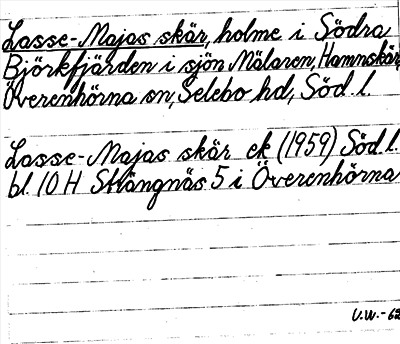 Lasse-Majas skär, holme i Södra
Björkfjärden i sjön Mälaren, Hamnskär,
Överenhörna sn, Selebo hd, Söd. l.
Lasse-Majas skär ek (1959) Söd. l.
bl. 10 H Strängnäs 5 i Överenhörna
U.W.-62